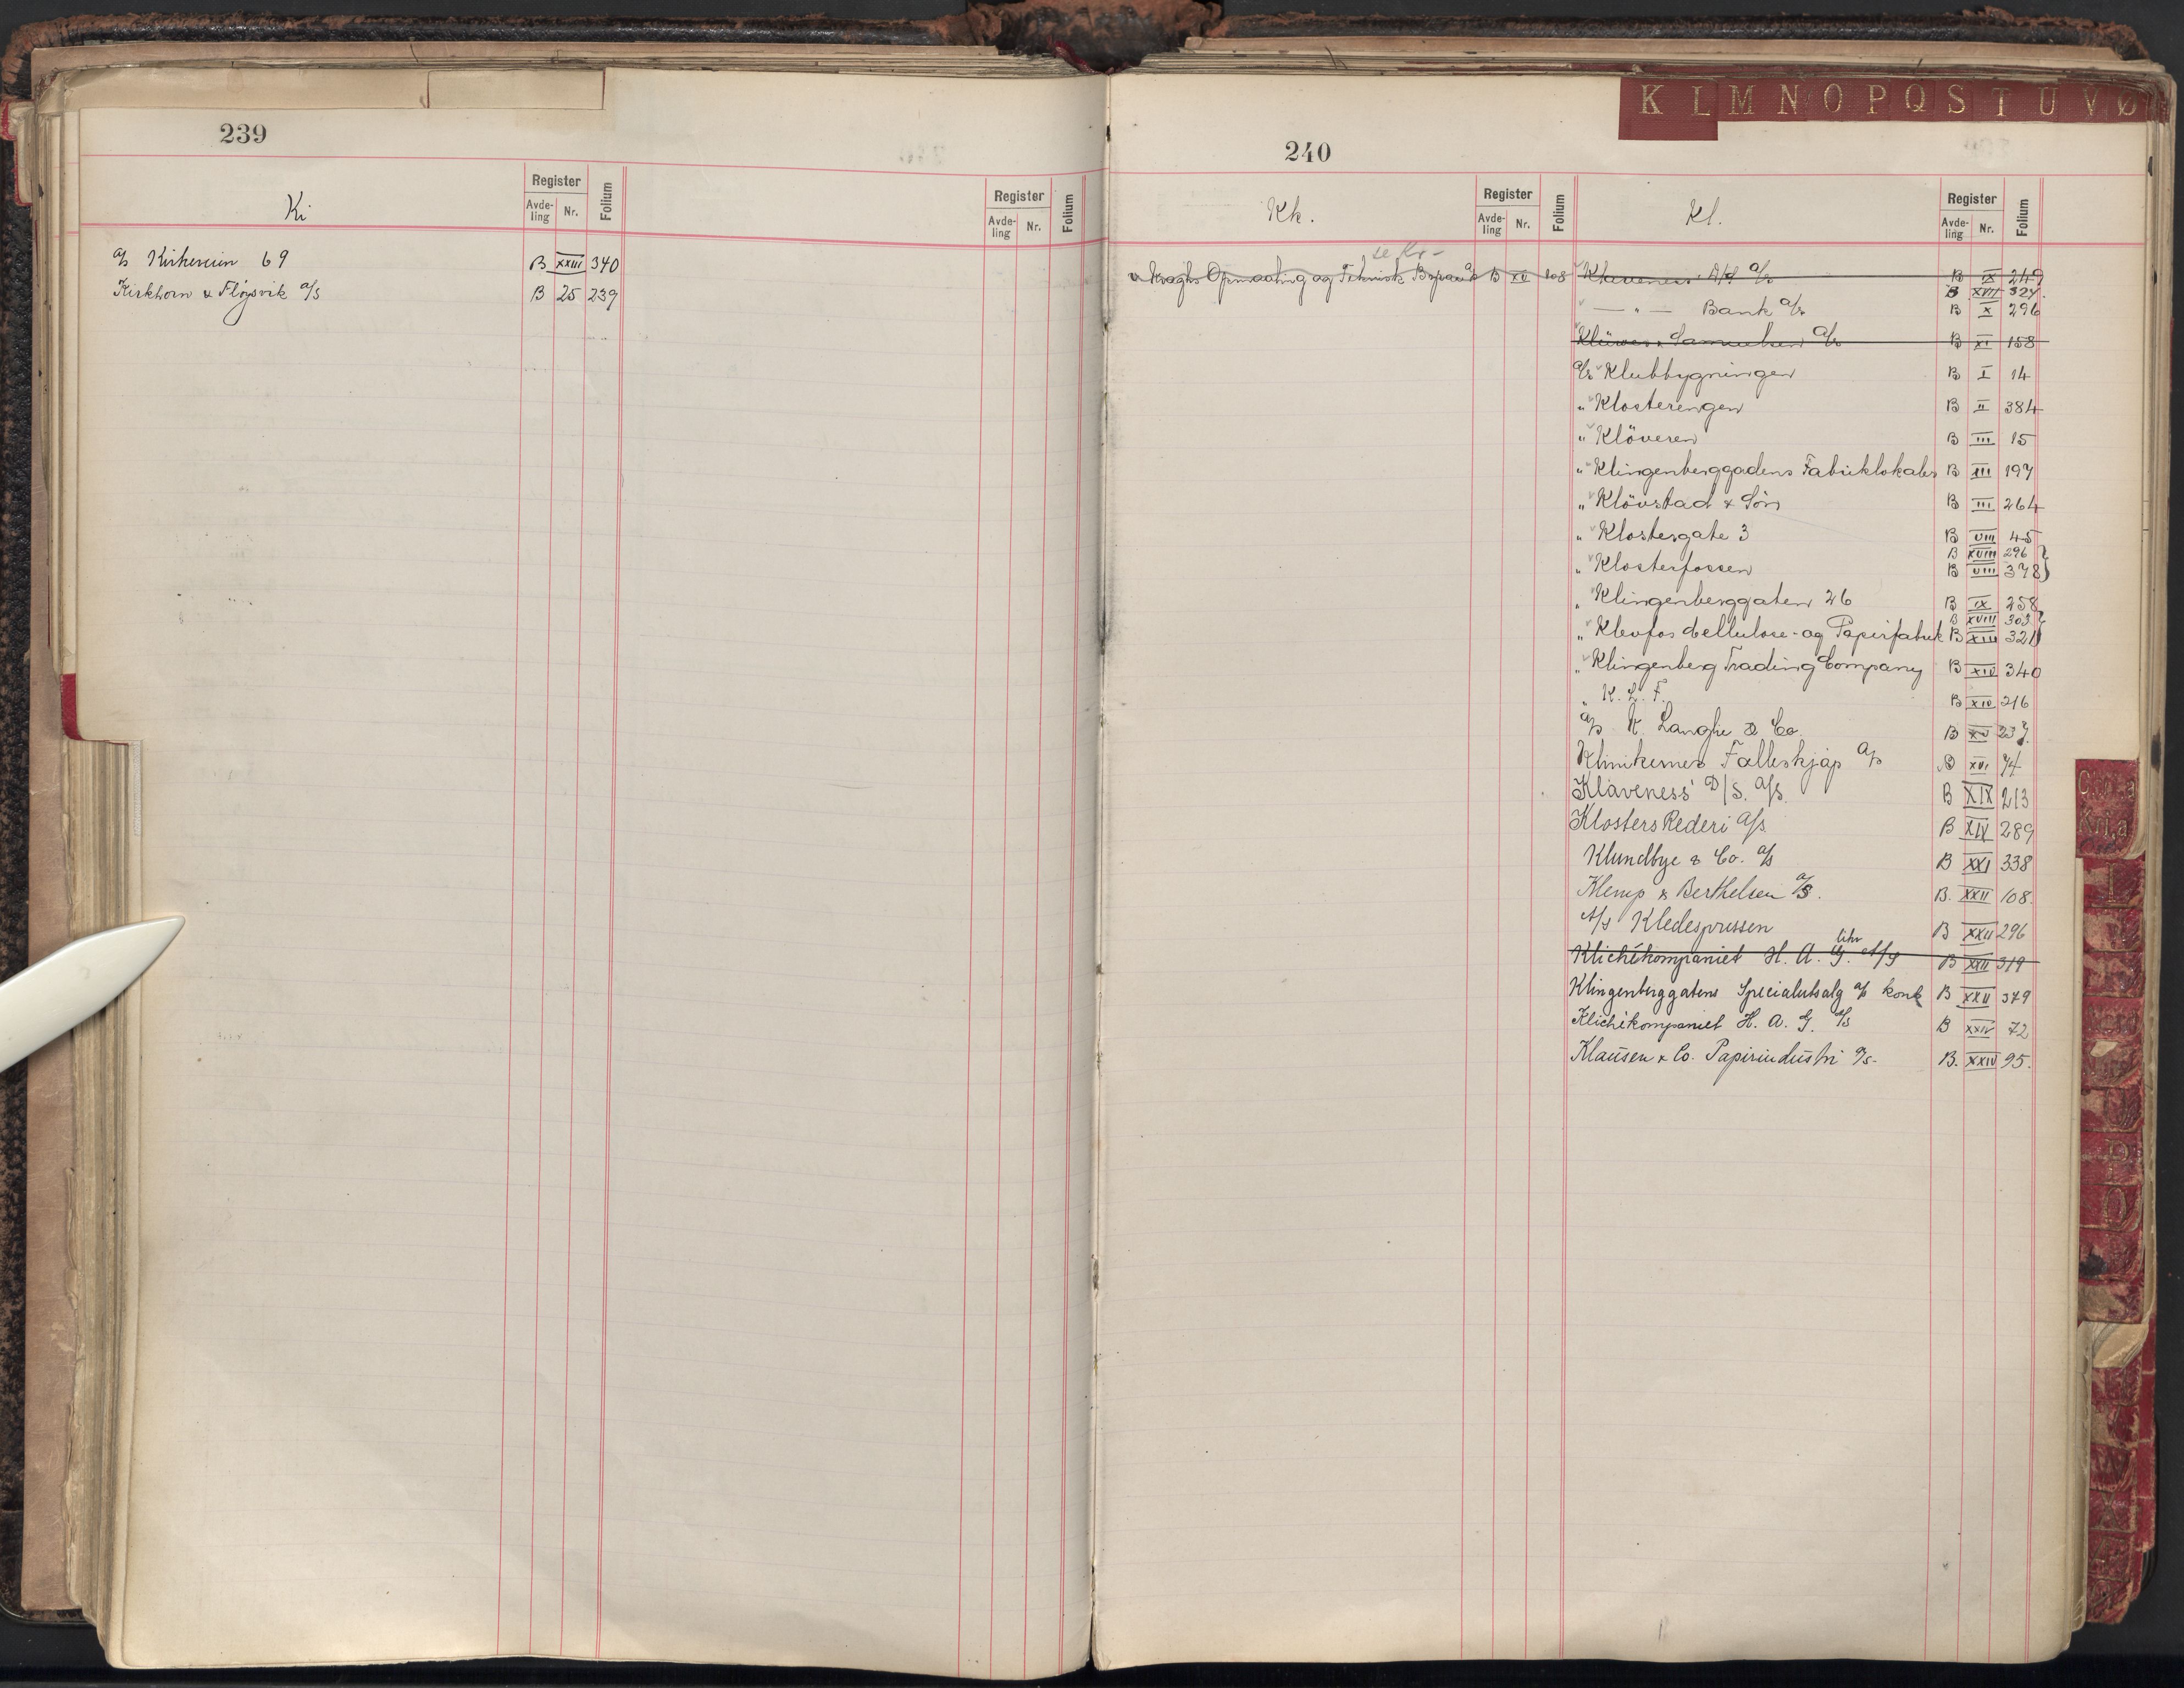 239
Ki
Register
Avde-
ling
Nr.
Folium
Register
Avde-
ling
Nr.
Folium
A/s Kirkeveien 69 B XXIII 340
Kirkhorn & Fløysvik A/S B 25 239
K L M N O P Q S T U V Ø
240
Kk.
Register
Avde-
ling
Nr.
Folium
Kl.
Register
Avde-
ling
Nr.
Folium
se Kr-
Kraghs Opmaaling og Teknisk B XV 108
Klaveness D/S A/s B IX 249
B XVII 327.
— " — Bank A/s B X 296
Klüwer & Samuelsen A/s B XI 158
A/s Klubbygningen B I 14
" Klosterengen B II 384
" Klöveren B III 15
" Klingenberggadens Fabriklokaler B III 197
" Klövstad & Sön B III 264
" Klostergate 3 B VIII 45
B XVIII 296
" Klosterfossen B VIII 378
" Klingenberggaten 26 B IX 258
B XVIII 303
" Klevfos Cellulose- og Papirfabrik B XIII 321
" Klingenberg Trading Company B XIV 340
" K. L. F. B XIV 216
A/s K. Langlie & Co. B XV 237
Klinikernes Fælleskjøp A/s B XVI 74
Klaveness' D/S. A/S. B XIX 213
Klosters Rederi A/S. B XIX 289
Klundbye & Co. A/S B XXI 338
Klemp & Berthelsen A/S. B. XXII 108.
A/S Kledespressen B XXII 296
likv
Klichékompaniet H. A. G. A/S B XXII 319
Klingenberggatens Specialutsalg A/S konk B XXII 349
Klichékompaniet H. A. G. A/S B XXIV 72
Klausen & Co. Papirindustri A/S- B. XXIV 95.